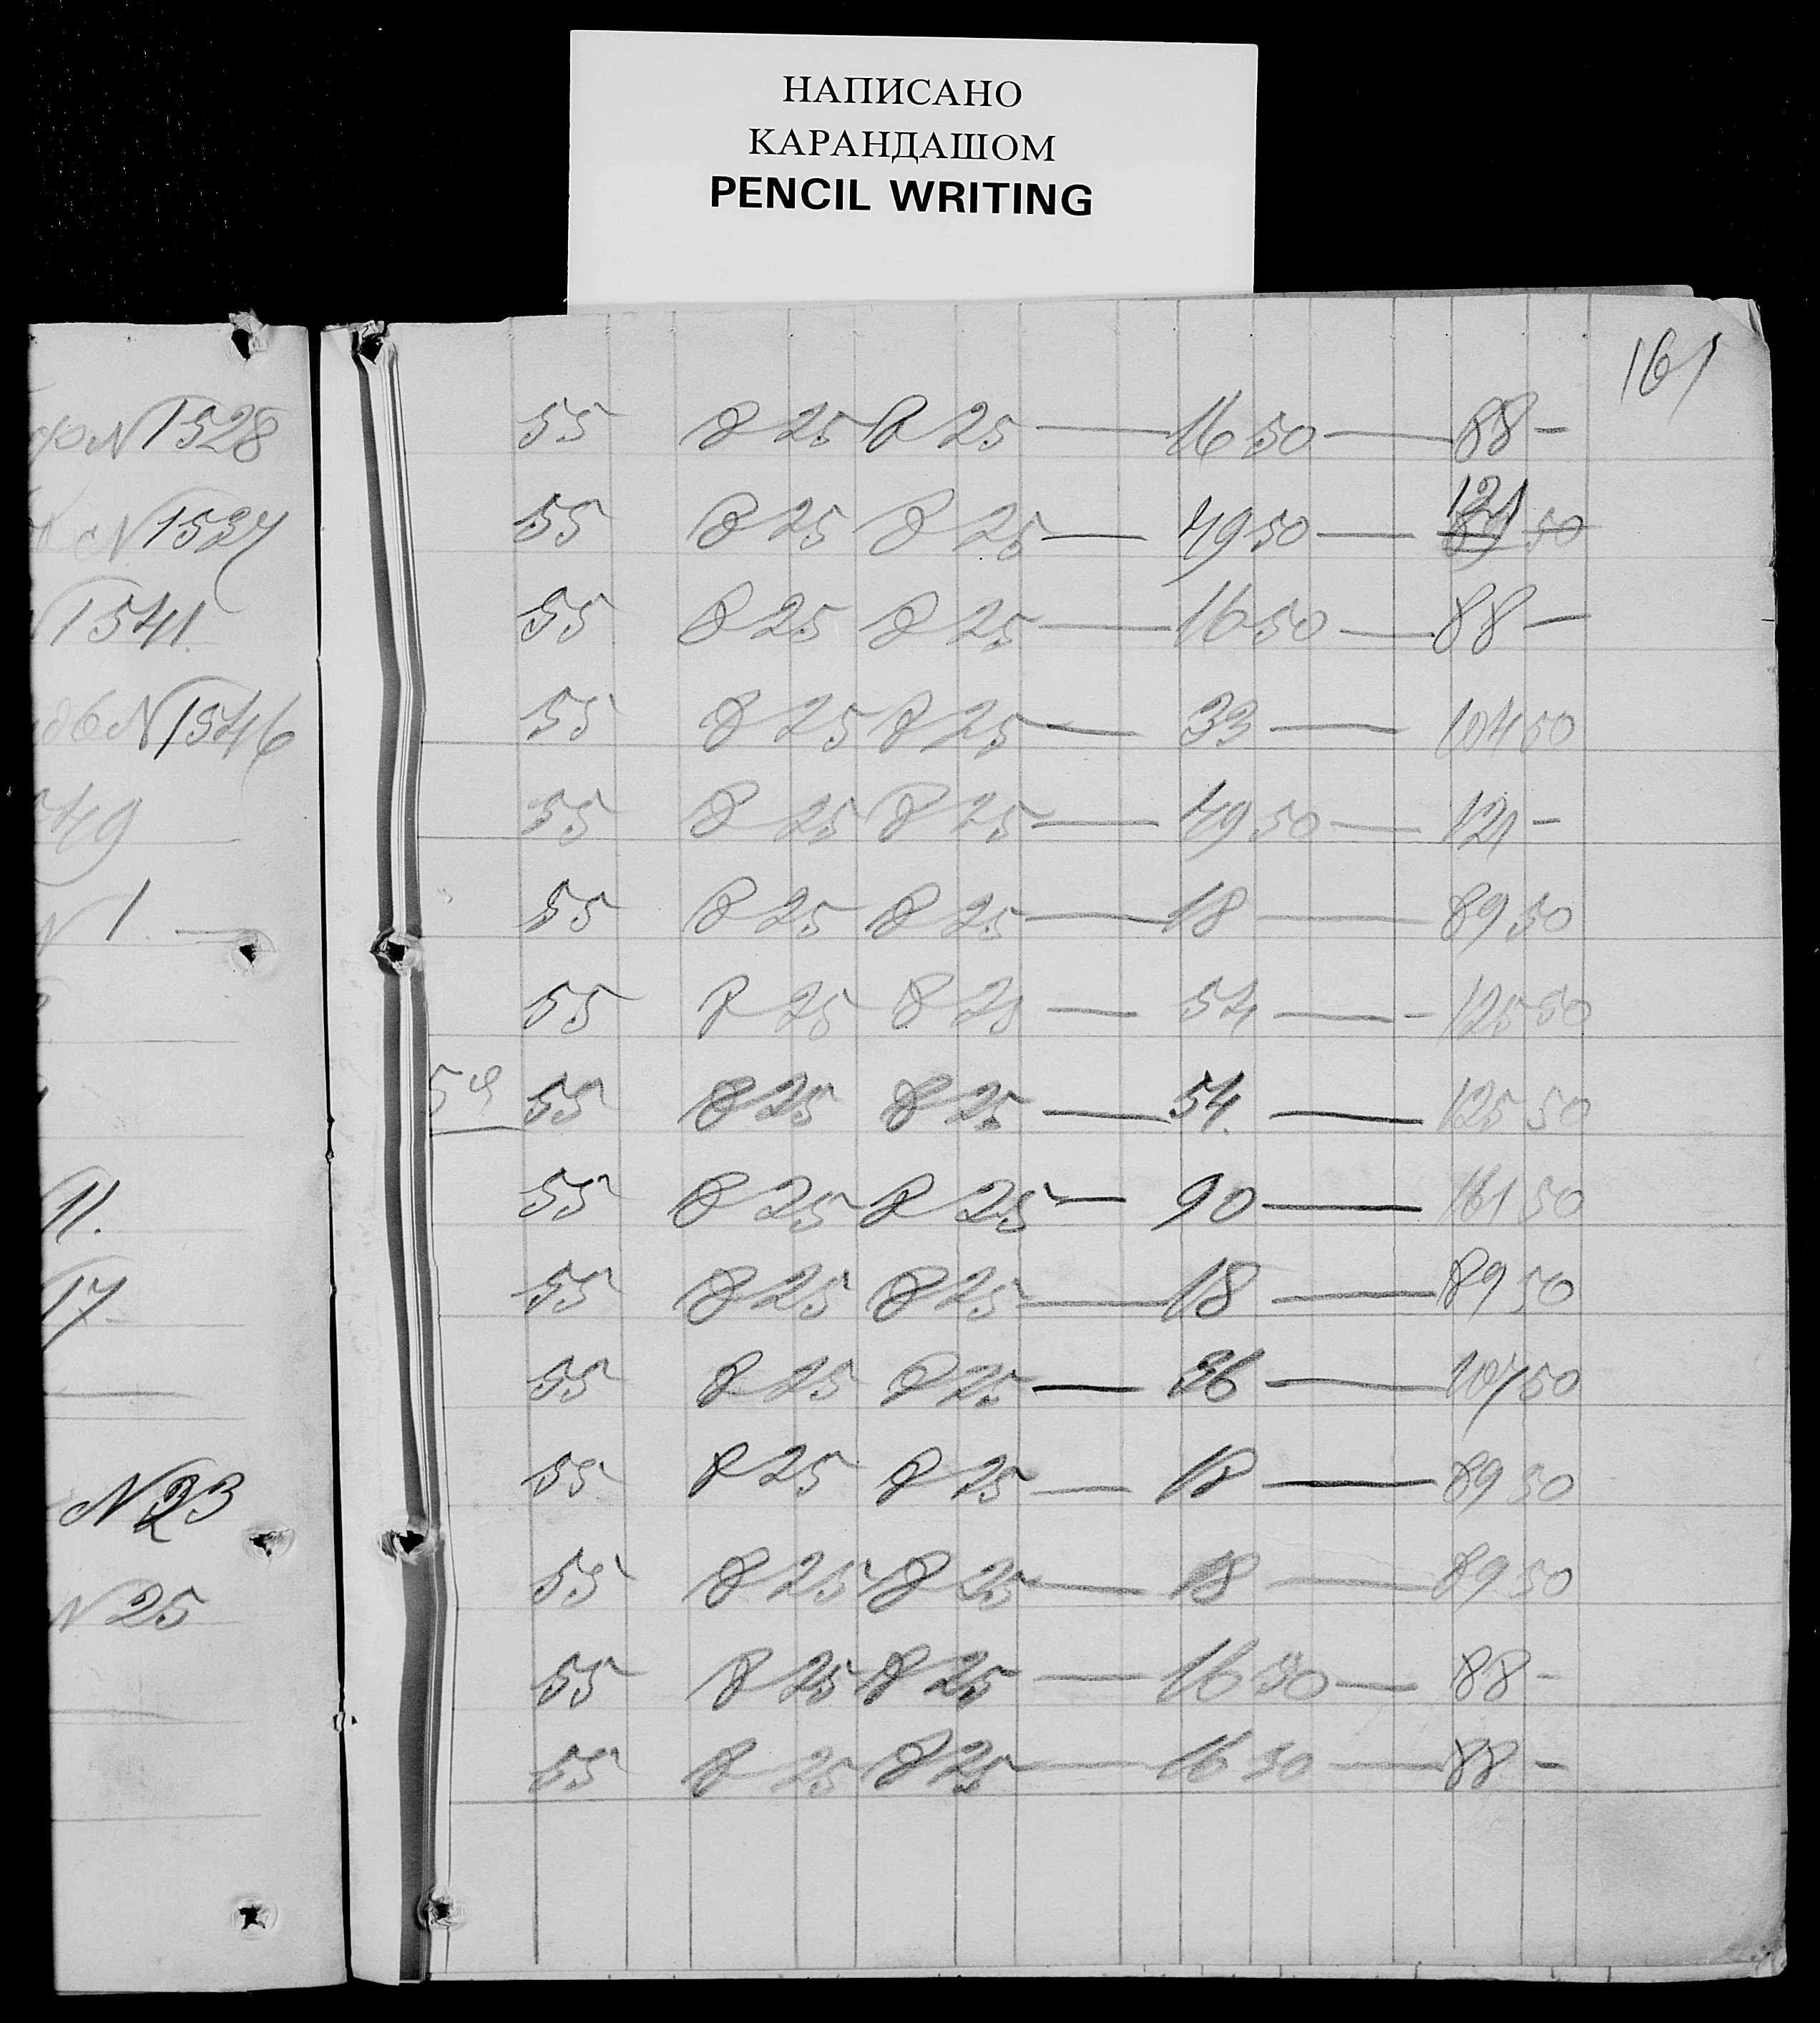 НАПИСАНО
КАРАНДАШОМ
PENCIL WRITING
161
N 1528
N 1537
1541.
N 1546
549
N 1 —
11.
17
N 23
N 25
55 8 25 8 25 — 16 50 — 88 —
55 8 25 8 25 — 49 50 — 121 50
55 8 25 8 25 — 16 50 — 88 —
55 8 25 8 25 — 33 — 104 50
55 8 25 8 25 — 49 50 — 121 —
55 8 25 8 25 — 18 — 89 50
55 8 25 8 25 — 54 — 125 50
55 8 25 8 25 — 54. — 125 50
55 8 25 8 25 — 90 — 161 50
55 8 25 8 25 — 18 — 89 50
55 8 25 8 25 — 36 — 107 50
55 8 25 8 25 — 18 — 89 50
55 8 25 8 25 — 18 — 89 50
55 8 25 8 25 — 16 50 — 88 —
55 8 25 8 25 — 16 50 — 88 —